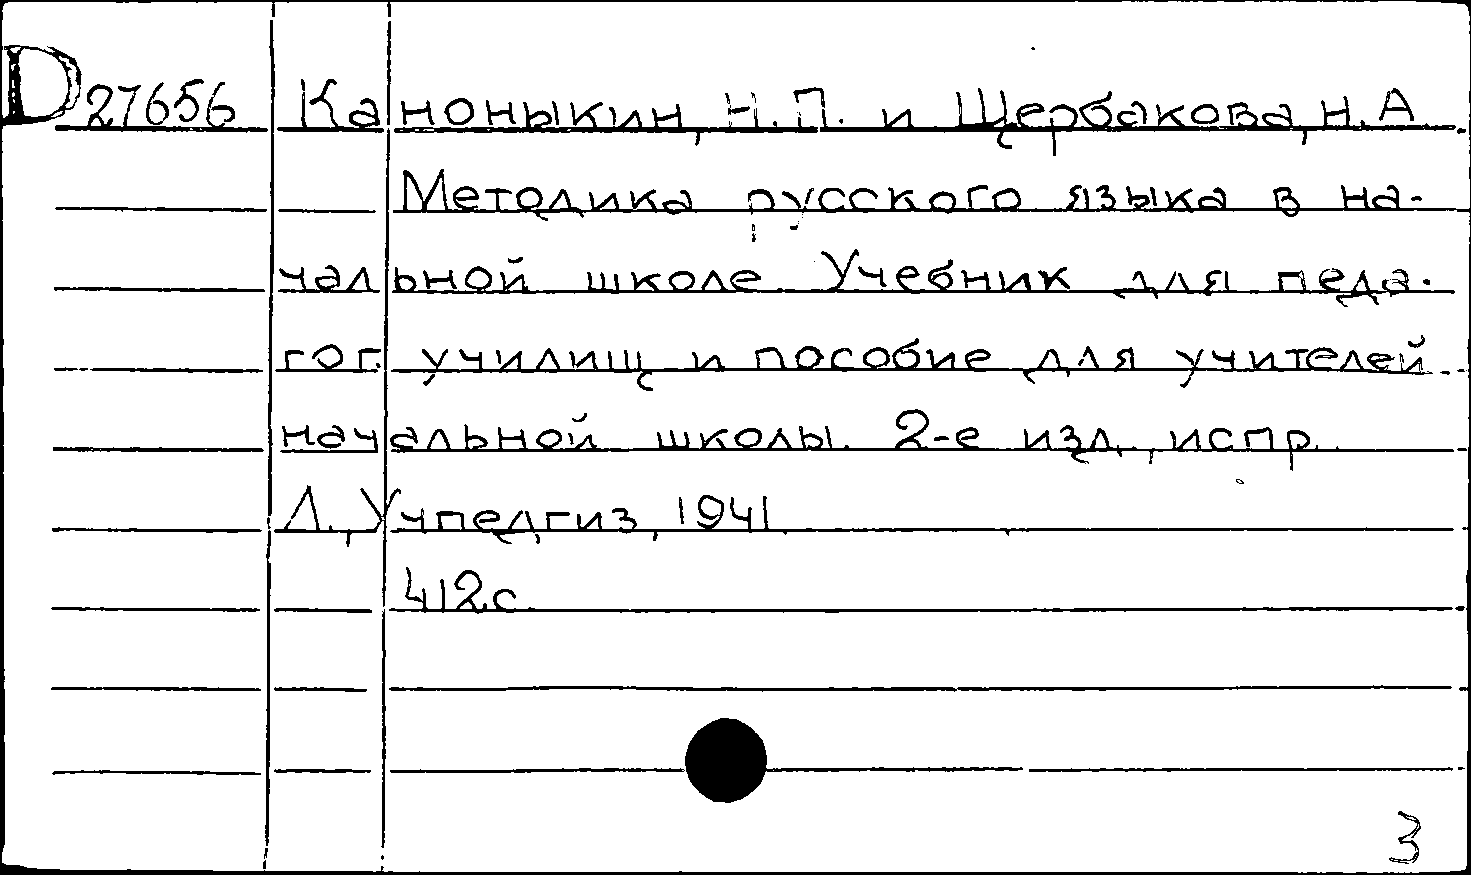 D27656 Каноныкин, Н.П. и Щербакова, Н.А
Методика русского языка в на-
чальной школе. Учебник для педа-
гог. училищ и пособие для учителей
начальной школы. 2-е изд., испр.
Л., Учпедгиз, 1941.
412 с.
3